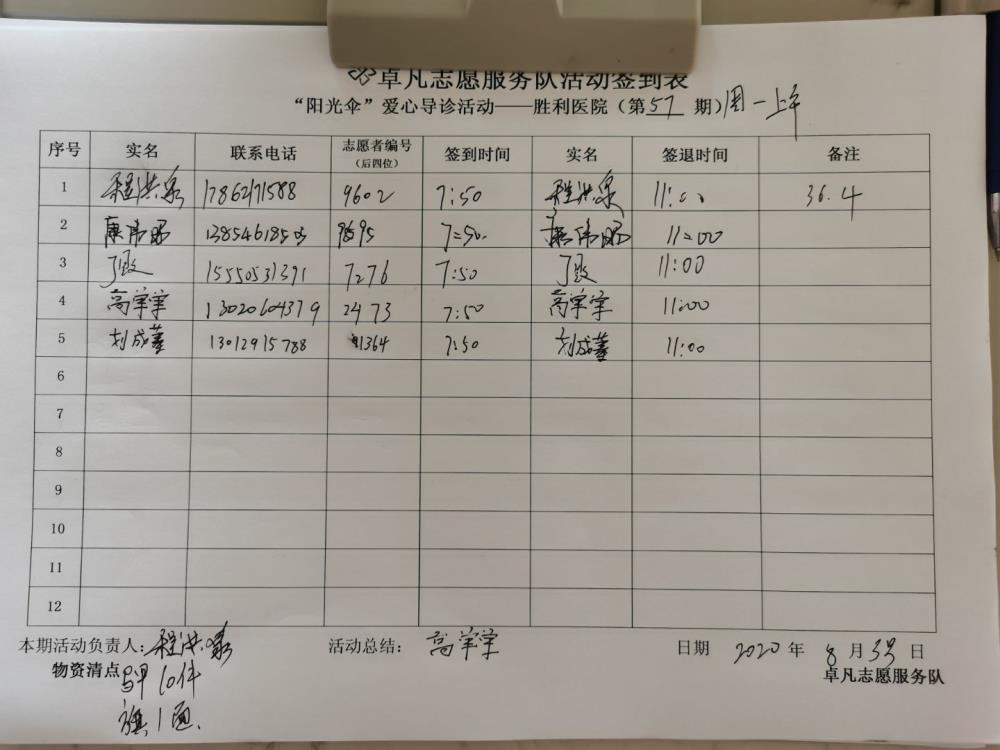 卓凡志愿服务队活动签到表
“阳光伞”爱心导诊活动——胜利医院（第57期）周一上午
序号 实名 联系电话 志愿者编号（后四位） 签到时间 实名 签退时间 备注
1 程洪泉 17862171588 9602 7:50 程洪泉 11:00 36.4
2 康伟昭 9695 7:50. 康伟昭 11:00
3 丁毅 15550531391 7276 7:50 丁毅 11:00
4 高学学 13020604379 2473 7:50 高学学 11:00
5 刘成菫 13012915788 1364 7:50 刘成菫 11:00
6
7
8
9
10
11
12
本期活动负责人：程洪泉 活动总结：高学学 日期 2020年8月3号日
物资清点 马甲10件 卓凡志愿服务队
旗1面.